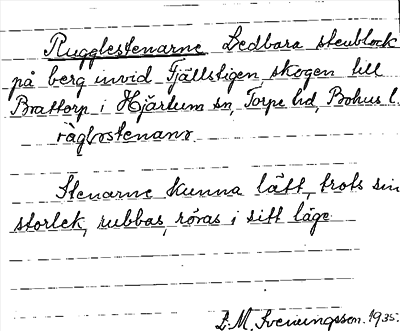 Rugglestenarne Ledbara stenblock
på berg invid Fjällstigen skogen till
Brattorp i Hjärtum sn, Torpe hd, Bohus l.
rågbostenanr
Stenarne kunna lätt, trots sin
storlek, rubbas, röras i sitt läge
E.M. Sveningsson. 1935.